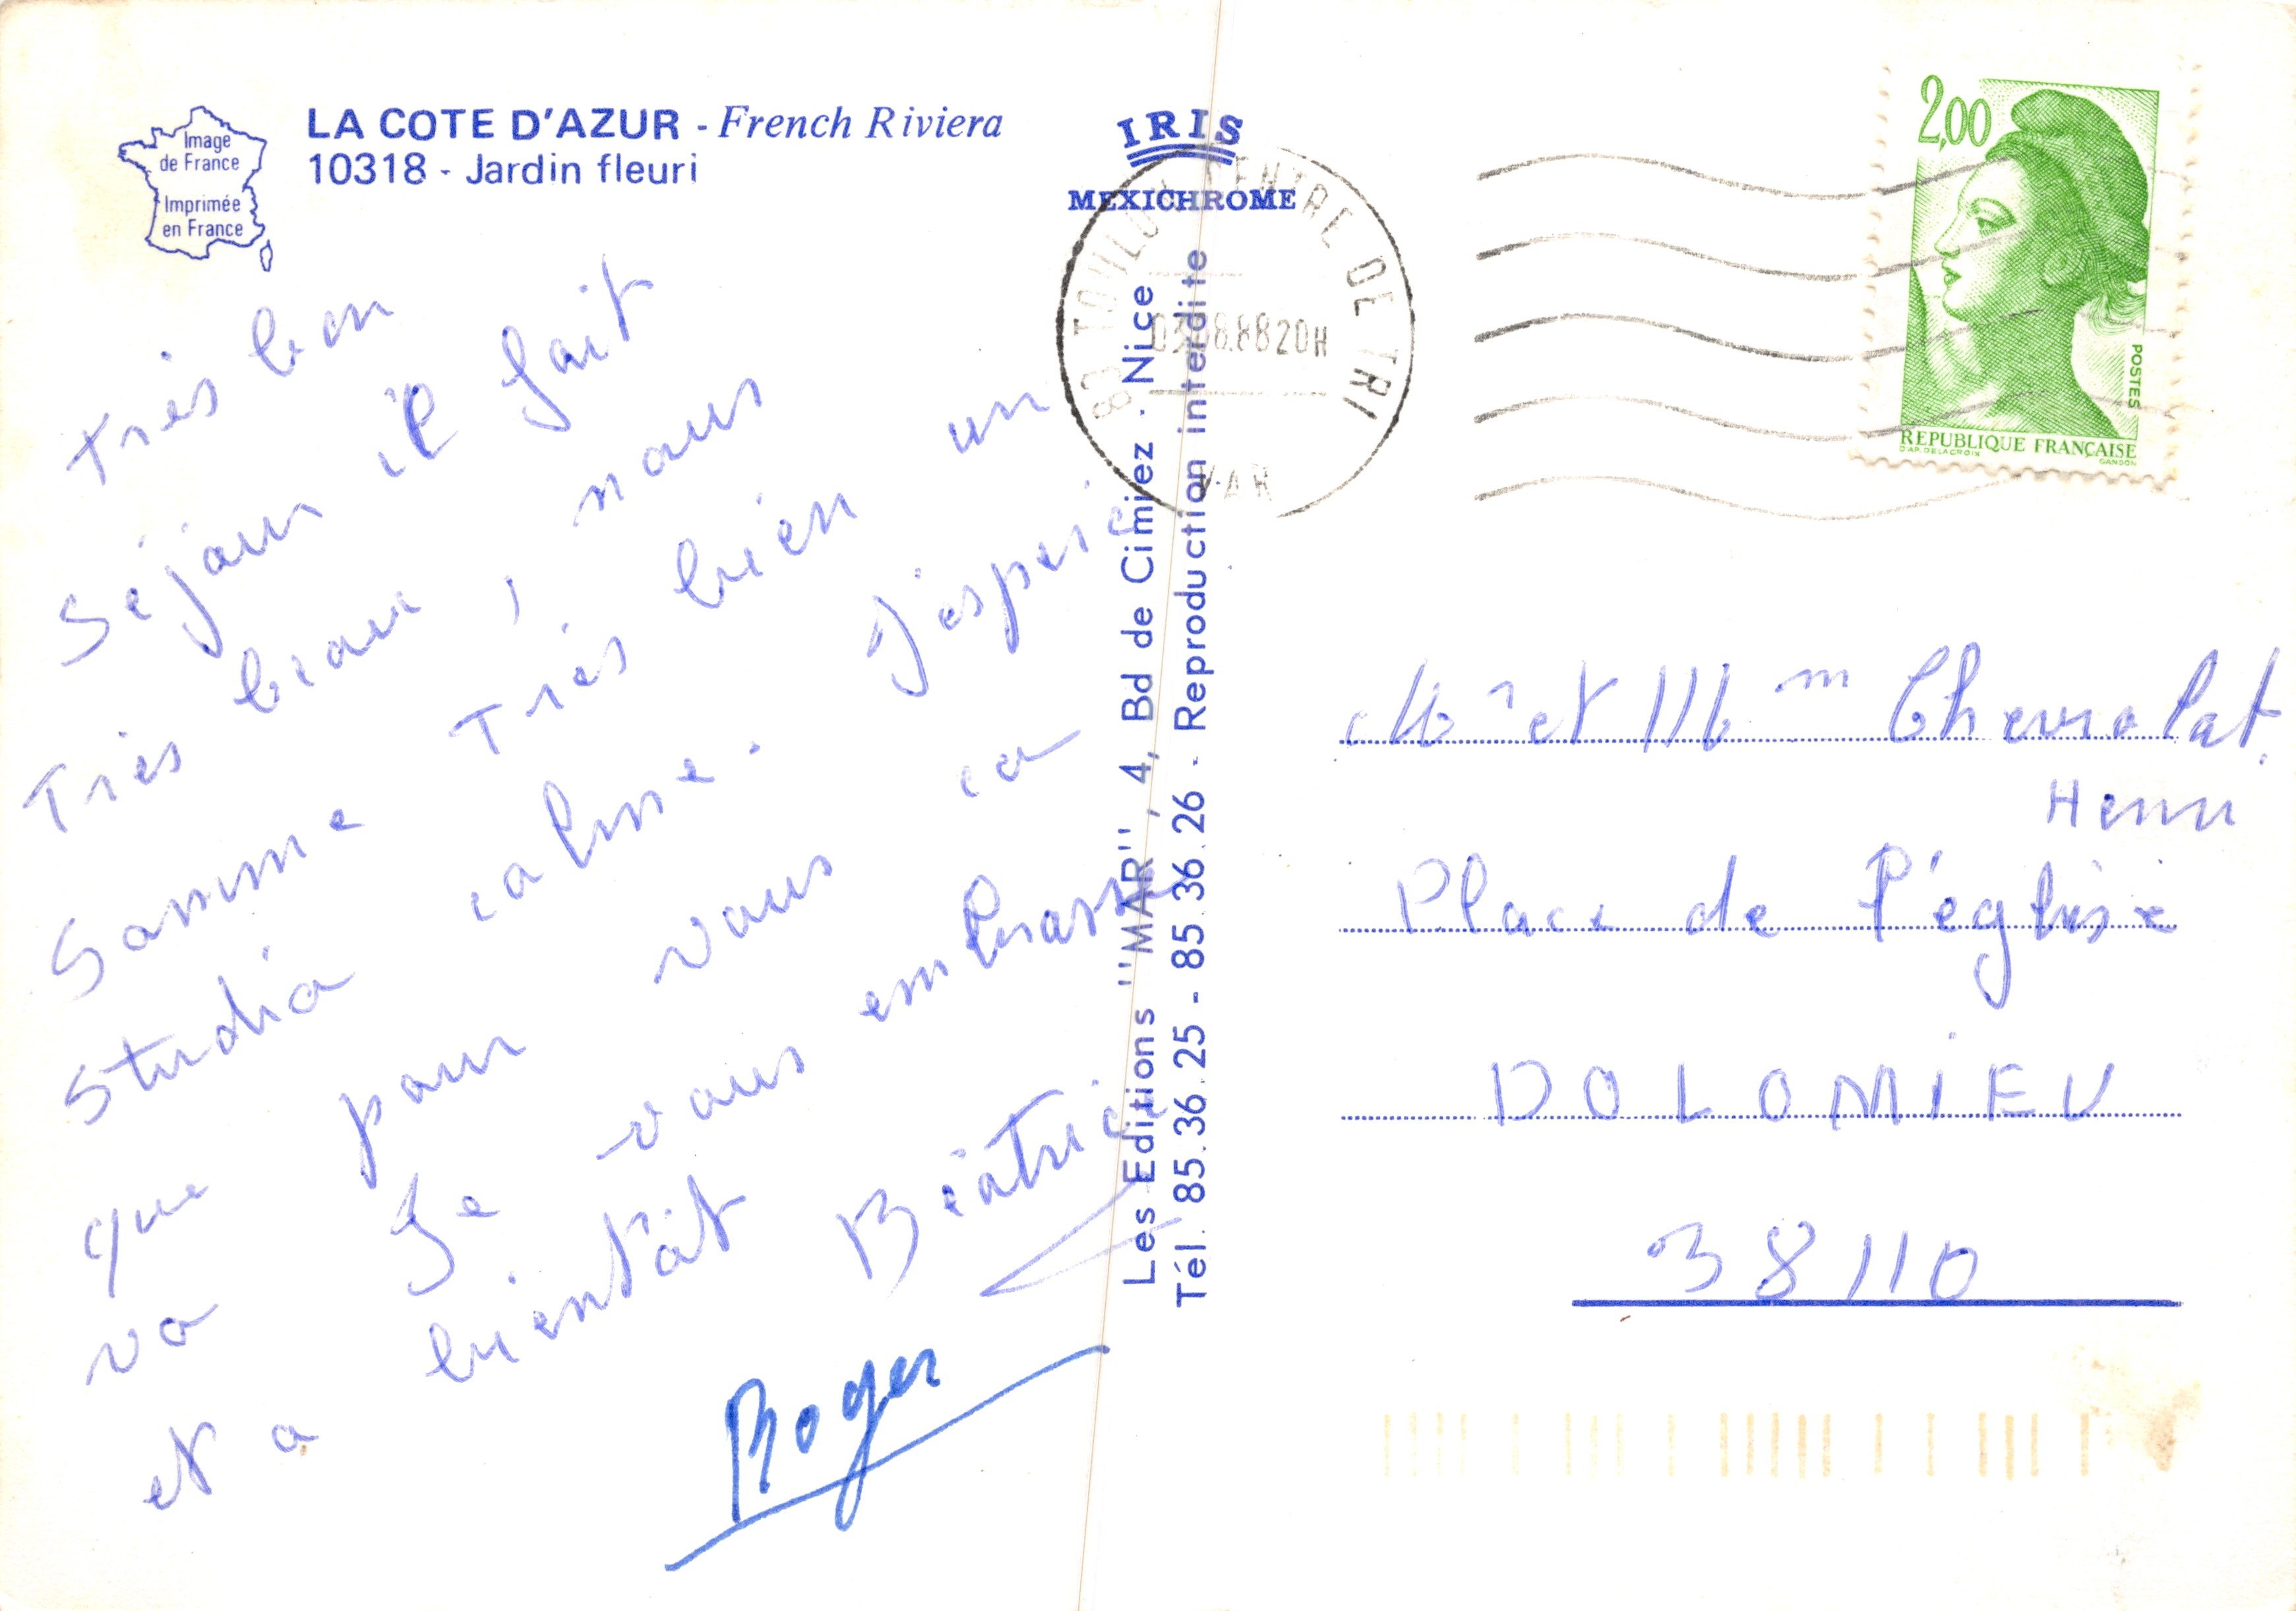 Image
de France
Imprimée
en France
LA COTE D'AZUR - French Riviera
10318 - Jardin fleuri
IRIS
MEXICHROME
Très bon
Séjour il fait
Très beau, nous
Somme Très bien un
Studio calme. J'espère
que pour vous ca
va Je vous embrasse
et a bientôt Béatrice
Roger
Les Editions "MAR", 4, Bd de Cimiez . Nice
Tél. 85.36.25 - 85.36.26 - Reproduction interdite
83 TOULON CENTRE DE TRI
20H
VAR
2,00
POSTES
REPUBLIQUE FRANÇAISE
D'AP. DELACROIX
GANDON
Mr et Mm Chevrolat
Henri
Place de l'église
DOLOMIEU
38110